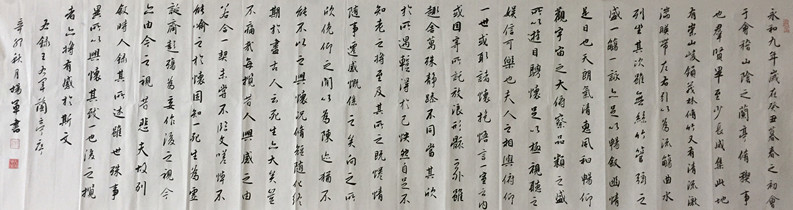 永和九年歲在癸丑暮春之初會
于會稽山陰之蘭亭脩稧事
也群賢畢至少長咸集此地
有崇山峻領茂林脩竹又有清流激
湍暎帶左右引以為流觴曲水
列坐其次雖無絲竹管弦之
盛一觴一詠亦足以暢敘幽情
是日也天朗氣清惠風和暢仰
觀宇宙之大俯察品類之盛
所以遊目騁懷足以極視聽之
娛信可樂也夫人之相與俯仰
一世或取諸懷抱悟言一室之內
或因寄所託放浪形骸之外雖
趣舍萬殊靜躁不同當其欣
於所遇暫得於己快然自足不
知老之將至及其所之既惓情
隨事遷感慨係之矣向之所
欣俛仰之間以為陳迹猶不
能不以之興懷況脩短隨化終
期於盡古人云死生亦大矣豈
不痛哉每攬昔人興感之由
若合一契未嘗不臨文嗟悼不
能喻之於懷固知死生為虛
誕齊彭殤為妄作後之視今
亦由今之視昔悲夫故列
敘時人錄其所述雖世殊事
異所以興懷其致一也後之攬
者亦將有感於斯文
錄王右軍蘭亭序
辛卯秋月楊軍書